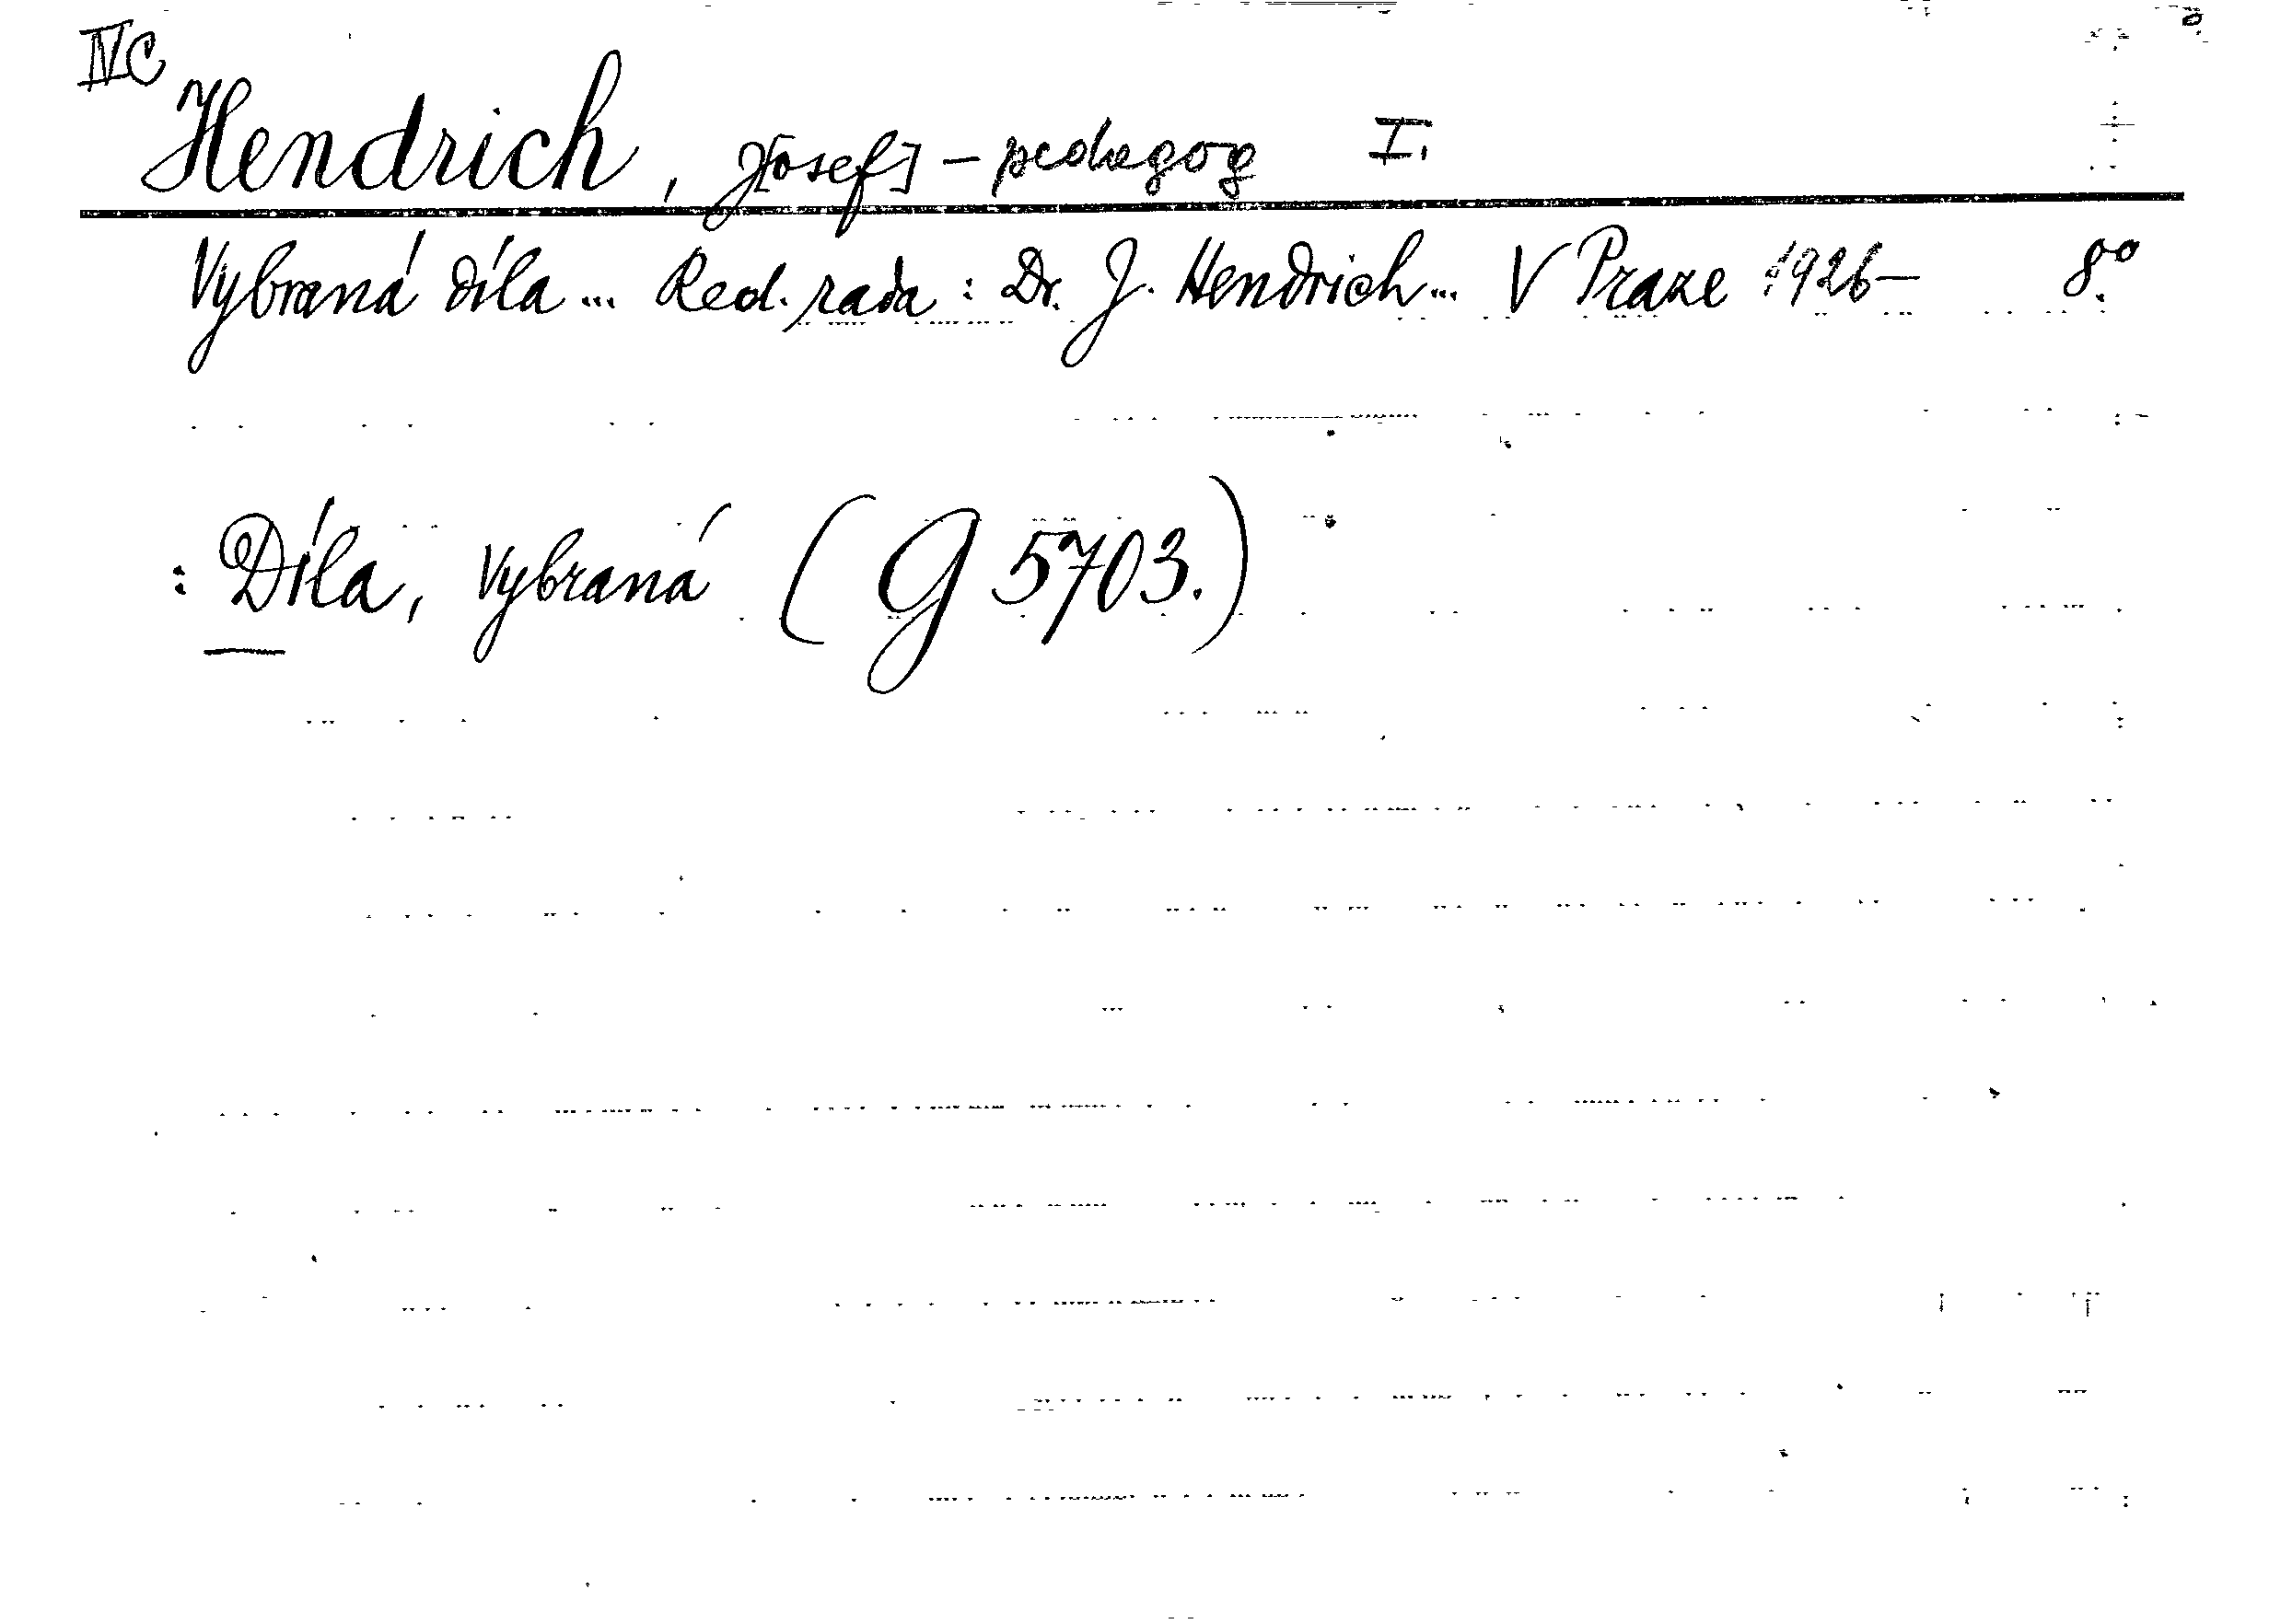 IVC
Hendrich, J[osef] - pedagog I.
Vybraná díla... Red. rada: Dr. J. Hendrich... V Praze 1926- 8º.
: Díla, vybraná (G 5703.)